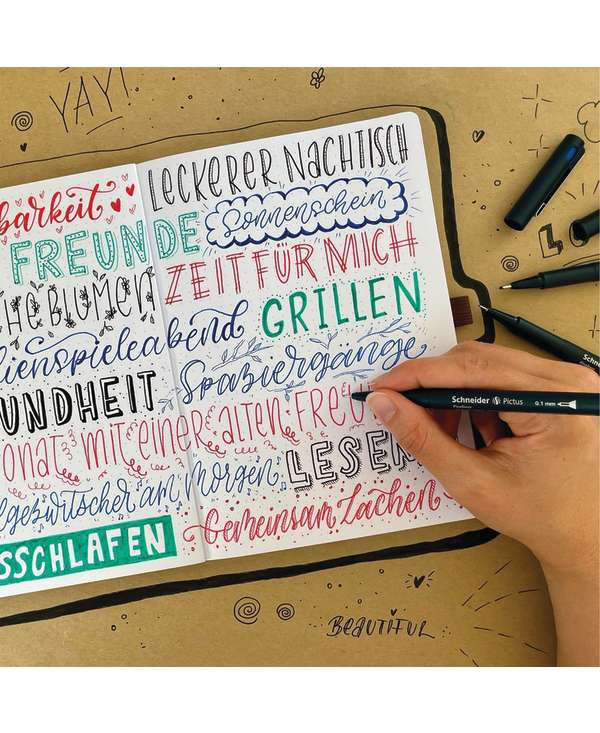 YAY!
LECKERER NACHTISCH
barkeit
Sonnenschein
FREUNDE
ZEIT FÜR MICH
CHE BLUMEN
GRILLEN
lienspieleabend
Spaziergänge
UNDHEIT
onat mit einer alten FREU
LESEN
lgezwitscher am morgen
Gemeinsam Lachen
SSCHLAFEN
Schneider Pictus
Fineliner 0.1 mm
BEAUTIFUL